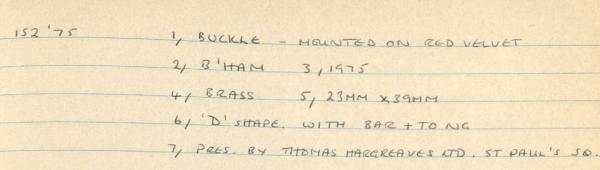 152 '75 1, BUCKLE - MOUNTED ON RED VELVET
2, B'HAM 3, 1975
4, BRASS 5, 23MM x 39MM
6, 'D' SHAPE. WITH BAR + TONG
7, PRES. BY THOMAS HARGREAVES LTD. ST PAUL'S SQ.